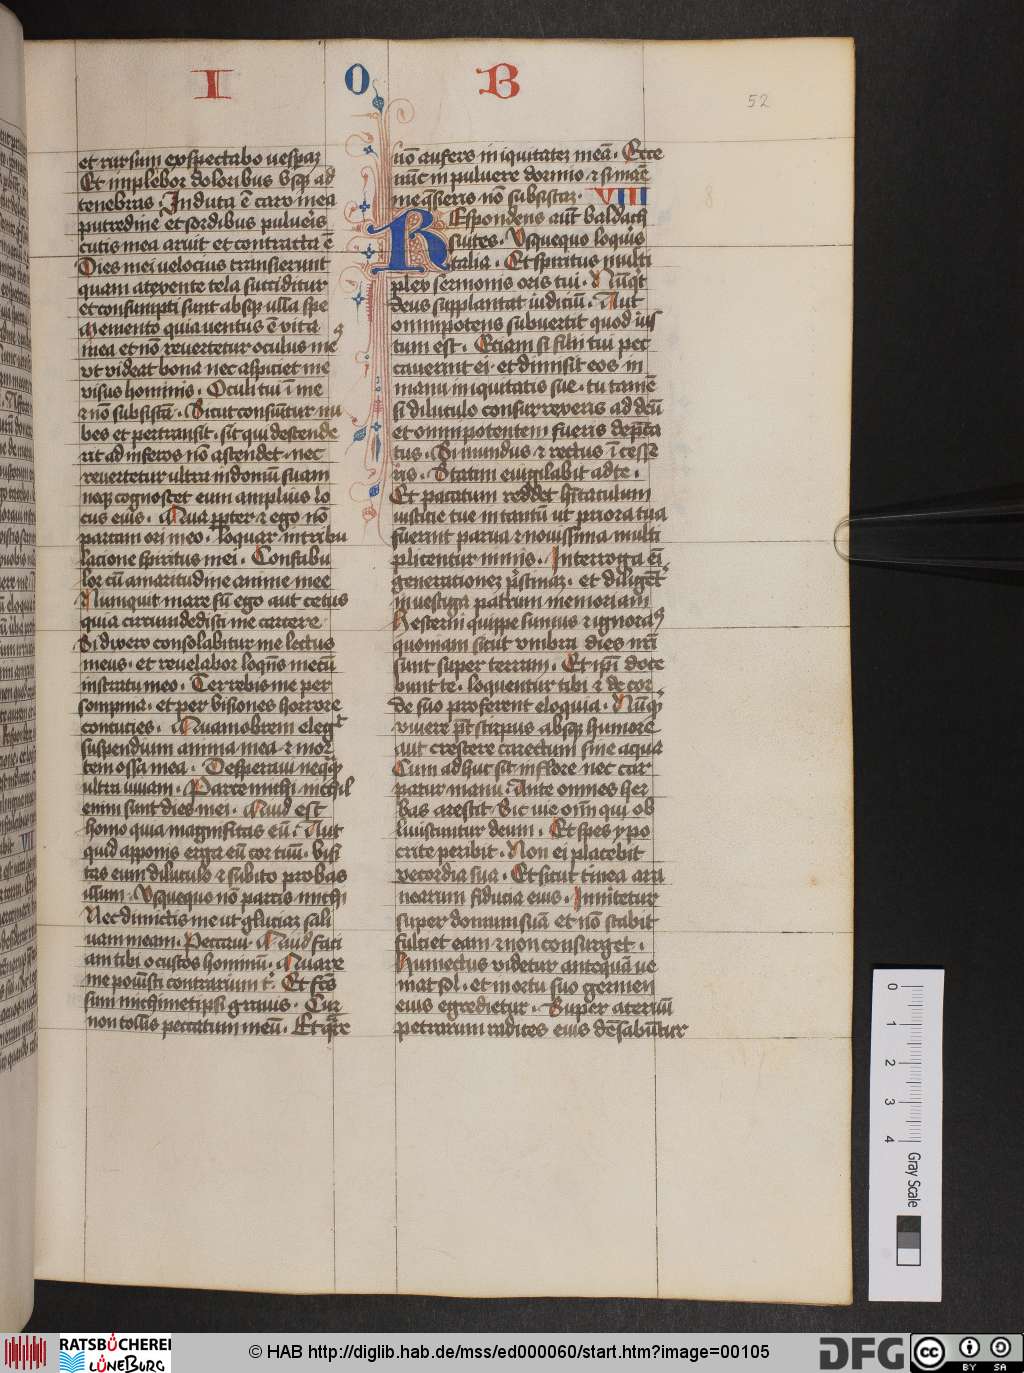 I O B
52
et rursum exspectabo uesperā
Et implebor doloribus vsq; ad
tenebras . Induta ē caro mea
putredine et sordibus pulueris
cutis mea aruit et contracta ē
Dies mei uelocius transierunt
quam a texente tela succiditur
et consumpti sunt absq; ulla spe
Memento quia uentus ē vita
mea et nō reuertetur oculus me
vt videat bona nec aspiciet me
visus hominis . Oculi tui ī me
⁊ nō subsistā . Sicut consūitur nu
bes et pertransit . sic qui descende
rit ad inferos nō ascendet . nec
reuertetur ultra in domū suam
neq; cognoscet eum amplius lo
cus eius . Qua ppter ⁊ ego nō
parcam ori meo . loquar in tribu
lacione spiritus mei . Confabu
lor cū amaritudine anime mee
Numquit mare sū ego aut cetus
quia circumdedisti me carcere
Si dixero consolabitur me lectus
meus . et reuelabor loquēs mecū
in stratu meo . Terrebis me per
sompnia . et per visiones horrore
concucies . Quamobrem elegit
suspendium anima mea ⁊ mor
tem ossa mea . Desperaui neq̄q̄
ultra uiuam . Parce michi nichil
enim sunt dies mei . Quid est
homo quia magnificas eū . Aut
quid apponis erga eū cor tuū . visi
tas eum diluculo ⁊ subito probas
illum . Vsquequo nō parcis michi
Nec dimictis me ut gluciaz sali
uam meam . Peccaui . Quid faci
am tibi o custos hominū . Quare
me posuisti contrarium t̄ . Et fc̄s
sum michimetipsi grauis . Cur
non tollis peccatum meū . Et q̄re
nō aufers iniquitatez meā . Ecce
nūc in puluere dormio ⁊ si mane
me q̄sieris nō subsistaz . VIII
8
REspondens aūt baldach
suites . Vsquequo loqueris
talia . Et spiritus multi
plex sermonis oris tui . Nūqd
deus supplantat iudiciū . Aut
omnipotens subuertit quod ius
tum est . Etiam si filii tui pec
cauerint ei . et dimisit eos in
manu iniquitatis sue . tu tamē
si diluculo consurrexeris ad deū
et omnipotentem fueris dep̄ca
tus . Si mundus ⁊ rectus īcesse
ris . Statim euigilabit ad te .
Et pacatum reddet habitaculum
iusticie tue in tantū ut priora tua
fuerint parua ⁊ nouissima multi
plicentur nimis . Interroga eī
generationez pristinaz . et diligēt
inuestiga patrum memoriam
Hesterni quippe sumus ⁊ ignoram9
quoniam sicut vmbra dies nr̄i
sunt super terram . Et ipsi doce
bunt te . loquentur tibi ⁊ de cor
de suo proferent eloquia . Nūqd
viuere pt̄ stirpus absq; humore
aut crescere carectum sine aqua
Cum adhuc sit in flore nec car
patur manu . Ante omnes her
bas arescit . Sic uie om̄i qui ob
liuiscuntur deum . Et spes ypo
crite peribit . Non ei placebit
vecordia sua . Et sicut tinea ara
nearum fiducia eius . Innitetur
super domum suā et nō stabit
fulciet eam ⁊ non consurget .
Humectus videtur antequā ue
niat sol . et in ortu suo germen
eius egredietur . Super aceruū
petrarum radices eius dēsabūtur
0
1
2
3
4
Gray Scale
RATSBÜCHEREI
LÜNEBURG
© HAB http://diglib.hab.de/mss/ed000060/start.htm?image=00105
DFG
cc BY SA